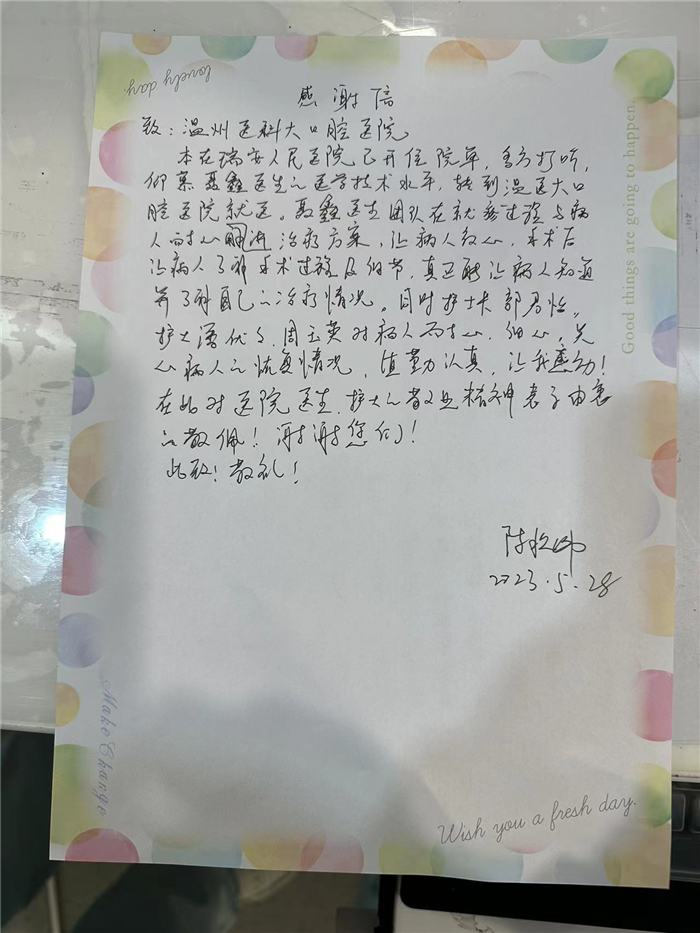 lovely day.
感谢信
致：温州医科大口腔医院
本在瑞安人民医院已开住院单，多方打听，
仰慕聂鑫医生的医学技术水平，转到温医大口
腔医院就医。聂鑫医生团队在就医过程与病
人耐心 治疗方案，让病人放心，手术后
让病人了解手术过程及细节，真正能让病人知道
并了解自己的治疗情况。同时护士长郭
护士 周玉英对病人耐心、细心，关
心病人的恢复情况，值勤认真，让我感动！
在此对医院医生、护士的敬业精神表示由衷
的敬佩！谢谢您们！
此致！敬礼！
陈
2023.5.28
Good things are going to happen.
Make Change
Wish you a fresh day.